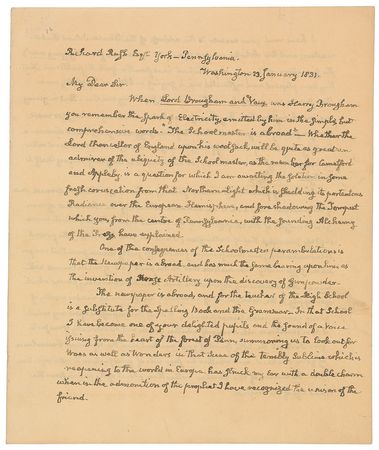 Richard Rush Esqr. York – Pennsylvania.
Washington 23. January 1831.
My Dear Sir.
When Lord Brougham and Vaux was Harry Brougham
you remember the spark of Electricity, emitted by him in the simple, but
comprehensive words. "The Schoolmaster is abroad" – Whether the
Lord Chancellor of England upon his woolsack, will be quite as great an
admirer of the ubiquity of the Schoolmaster, as the member for Camelford
and Appleby is a question for which I am awaiting the solution in some
fresh coruscation from that Northern light which is shedding its portentous
Radiance over the European Hemisphere, and foreshadowing the Tempest
which you, from the centre of Pennsylvania, with the sounding Alchemy
of the Press have explained.
One of the consequences of the Schoolmaster's perambulations is
that the Newspaper is abroad, and has much the same bearing upon time, as
the invention of Horse Artillery upon the discovery of Gunpowder.
The newspaper is abroad, and for the teacher of the High School
is a substitute for the Spelling Book and the Grammar. In that School
I have become one of your delighted pupils and the sound of a voice
issuing from the heart of the forest of Penn, summoning us to look out for
Woes as well as Wonders in that scene of the Terribly Sublime which is
reopening to the world in Europe has struck my ear with a double charm
when in the admonition of the prophet I have recognized the unison of the
friend.